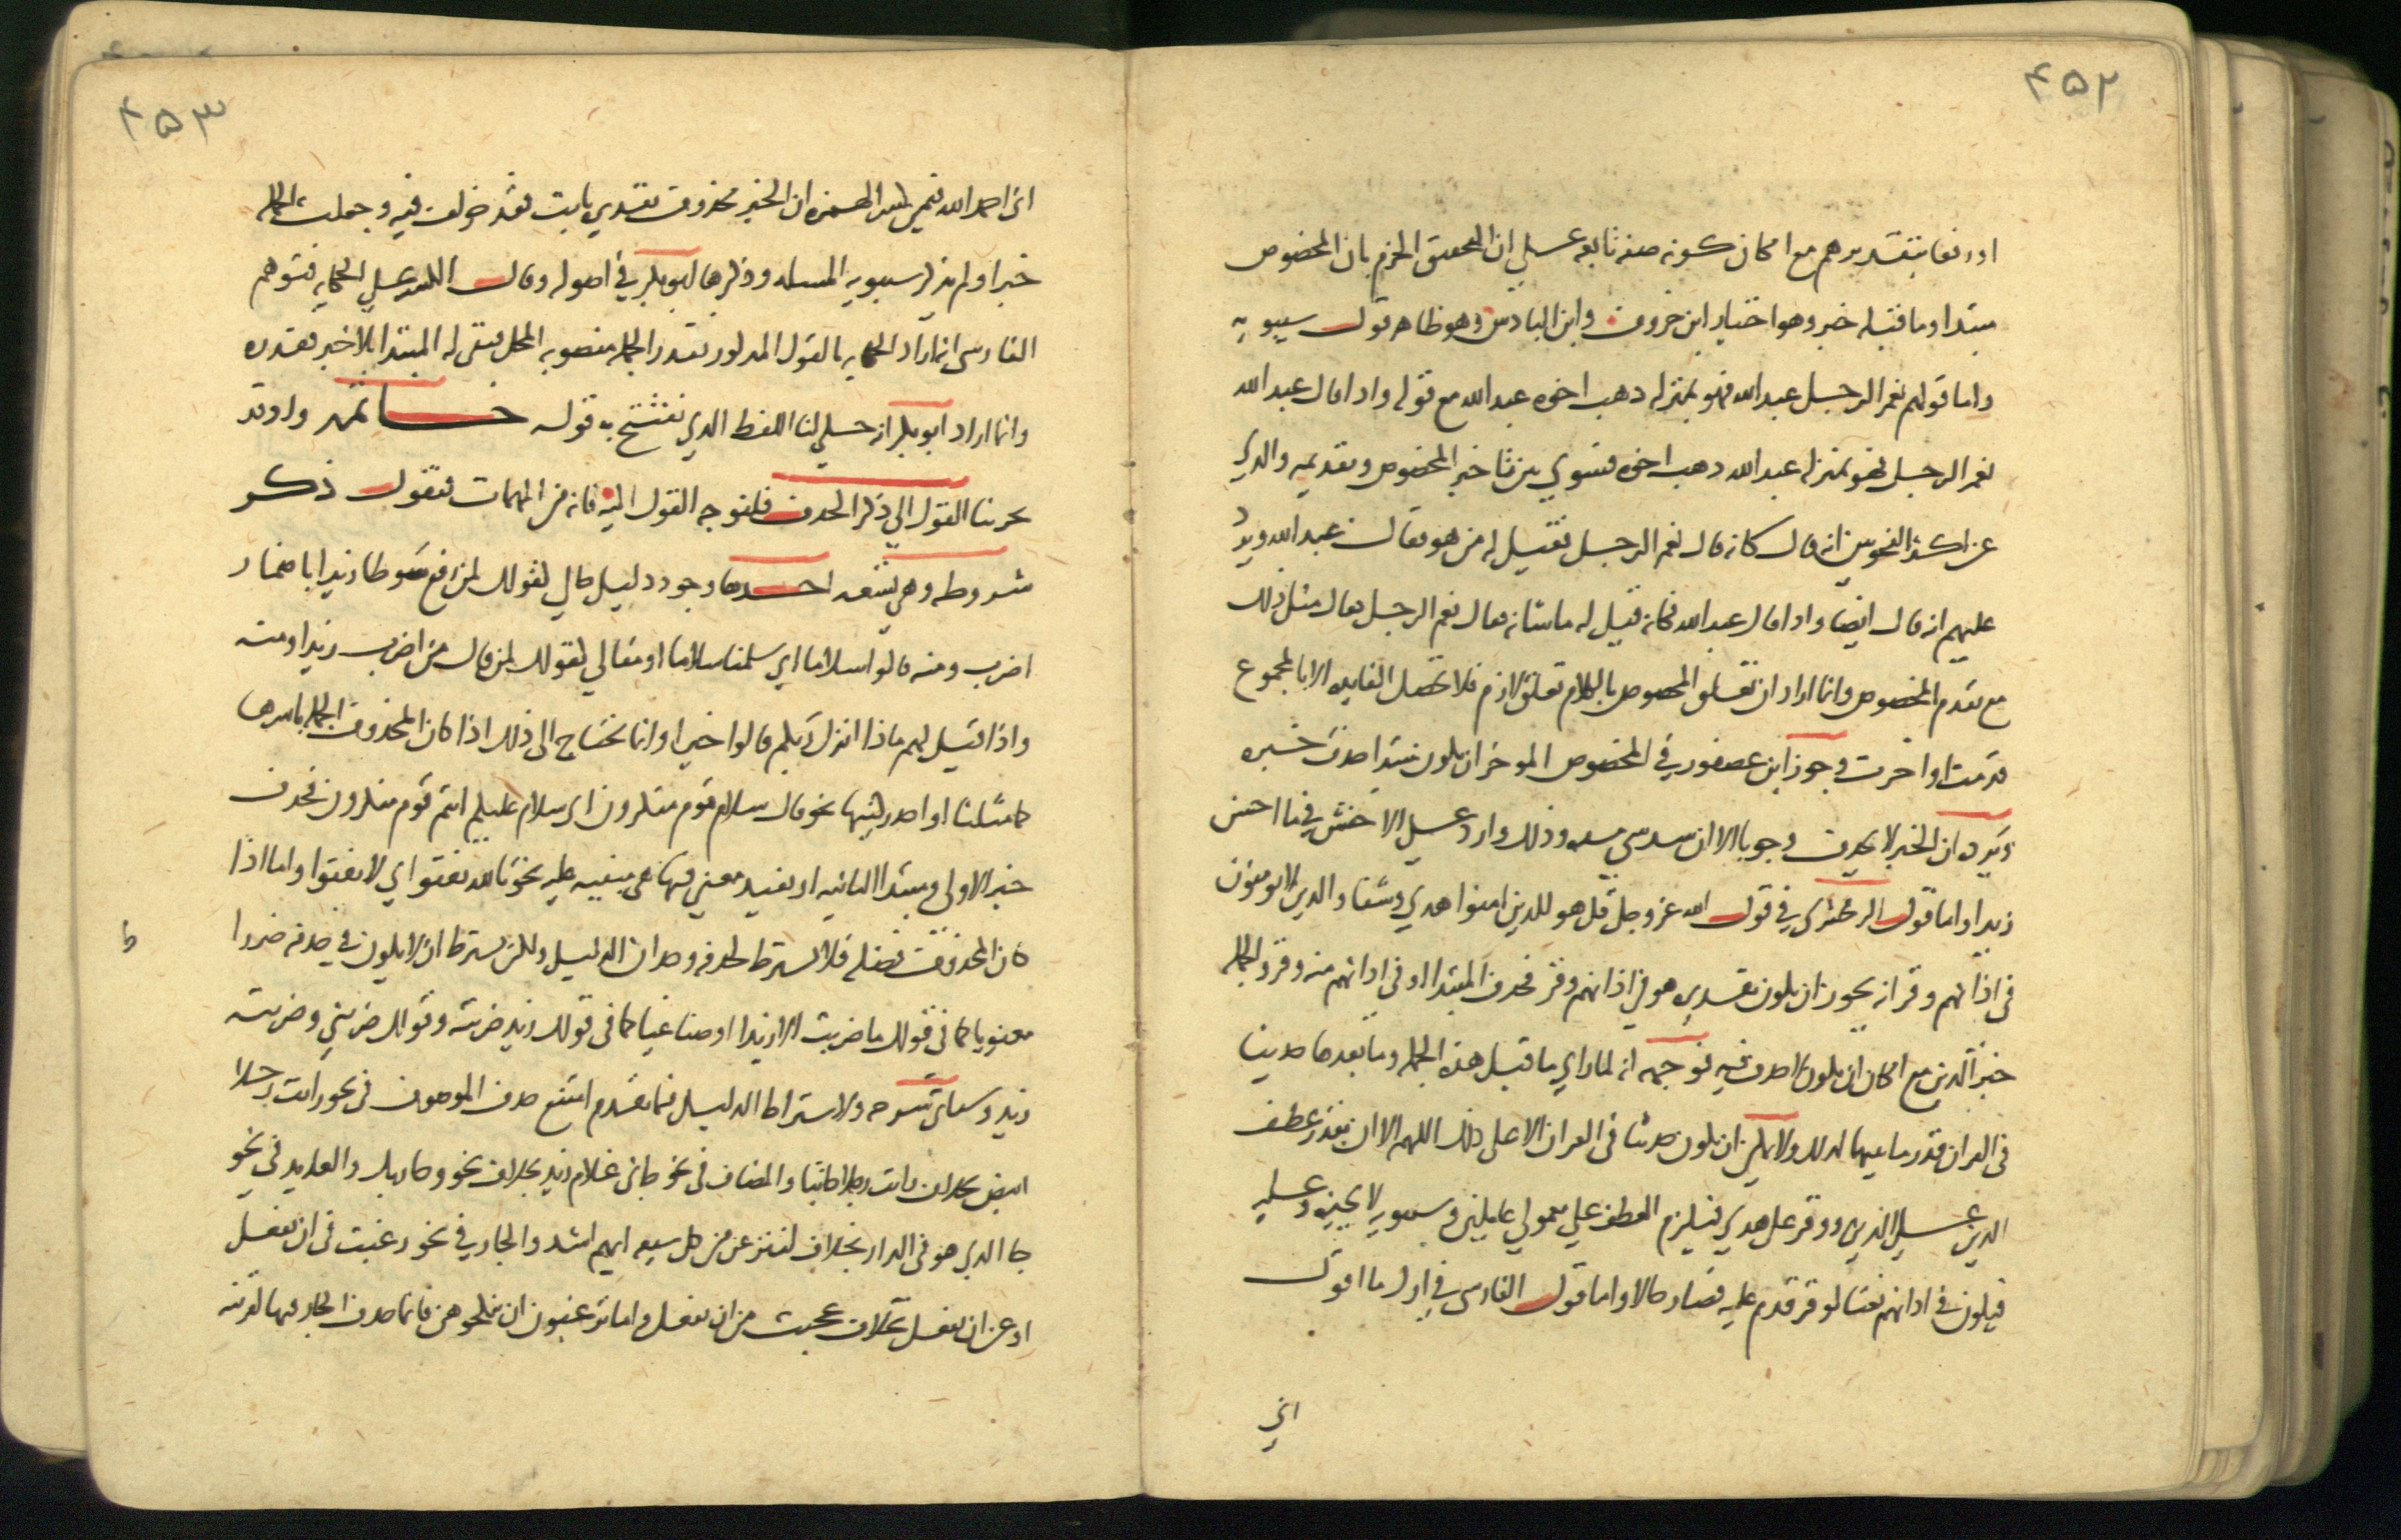 ۴۵۲
او رفعا بتقديرهم مع امكان كونه صفة تابعة على ان التحقيق الجزم بان المخصوص
مبتدا وما قبله خبر وهو اختيار ابن خروف وابن الباذش وهو ظاهر قول سيبويه
واما قولهم نعم الرجل عبد الله فهو بمنزلة ذهب اخوه عبد الله مع قوله واذا قال عبد الله
نعم الرجل فهو بمنزلة عبد الله ذهب اخوه فسوى بين تاخير المخصوص وتقديمه والذي
غر اكثر النحويين انه قال كانه قال نعم الرجل فقيل له من هو فقال عبد الله ويرد
عليهم انه قال ايضا واذا قال عبد الله فكانه قيل له ما شانه فقال نعم الرجل فقال مثل ذلك
مع تقدم المخصوص وانما اراد ان تعلق المخصوص بالكلام تعلق لازم فلا تحصل الفايدة الا بالمجموع
قدمت او اخرت وجوز ابن عصفور في المخصوص الموخر ان يكون مبتدا حذف خبره
ويرده ان الخبر لا يحذف وجوبا الا ان سد شي مسده وذلك وارد على الاخفش في ما احسن
زيدا واما قول الزمخشري في قول الله عز وجل قل هو للذين امنوا هدى وشفاء والذين لا يومنون
في اذانهم وقر انه يجوز ان يكون تقديره هو في اذانهم وقر فحذف المبتدا او في اذانهم منه وقر والجملة
خبر الذين مع امكان ان يكون لا حذف فيه فوجهه انه لما راى ما قبل هذه الجملة وما بعدها حديثا
في القران قدر ما بينهما كذلك ولا يمكن ان يكون حديثا في القران الا على ذلك اللهم الا ان يقدر عطف
الذين على الذين ووقر على هدى فيلزم العطف على معمولي عاملين وسيبويه لا يجيزه وعليه
فيكون في اذانهم نعتا لوقر قدم عليه فصار حالا واما قول الفارسي في اول ما اقول
اني
۴۵۳
اني احمد الله فيمن كسر الهمزة ان الخبر محذوف تقديره ثابت فقد خولف فيه وجعلت الجملة
خبرا ولم يذكر سيبويه المسئلة وذكرها ابو بكر في اصوله وقال الكسر على الحكاية فتوهم
الفارسي انه اراد الحكاية بالقول المذكور فقدر الجملة منصوبة المحل فبقي له المبتدا بلا خبر فقدره
وانما اراد ابو بكر انه حكى لنا اللفظ الذي يفتتح به قوله خاتمة واذ وقد
بحر بنا القول الى ذكر الحذف فلنوجه القول اليه فانه من المهمات فنقول ذكر
شروطه وهي ثمنيه احدها وجود دليل حالي كقولك لمن رفع سوطا زيدا باضمار
اضرب ومنه قالوا سلاما اي سلمنا سلاما او مقالي كقولك لمن قال من اضرب زيدا ومنه
واذا قيل لهم ماذا انزل ربكم قالوا خيرا وانما يحتاج الى ذلك اذا كان المحذوف الجملة باسرها
كما مثلنا او احد ركنيها نحو قال سلام قوم منكرون اي سلام عليكم انتم قوم منكرون فحذف
خبر الاولى ومبتدا الثانية او يفيد معنى فيها هي مبنية عليه نحو تالله تفتوا اي لا تفتوا واما اذا
كان المحذوف فضله فلا يشترط لحذفه وجدان الدليل ولكن يشترط ان لا يكون في حذفه ضرر
معنوي كما في قولك ما ضربت الا زيدا او صناعي كما في قولك زيد ضربته وقولك ضربني وضربته
زيد وسياتي شرحه ولاشتراط الدليل فيما تقدم امتنع حذف الموصوف في نحو رايت رجلا
ابيض بخلاف رايت رجلا كاتبا والمضاف في نحو جاني غلام زيد بخلاف نحو وجا ربك والعايد في نحو
جا الذي هو في الدار بخلاف لننزعن من كل شيعة ايهم اشد والجار في نحو رغبت في ان تفعل
او عن ان تفعل بخلاف عجبت من ان تفعل واما وترغبون ان تنكحوهن فانما حذف الجار فيها لقرينة
ط